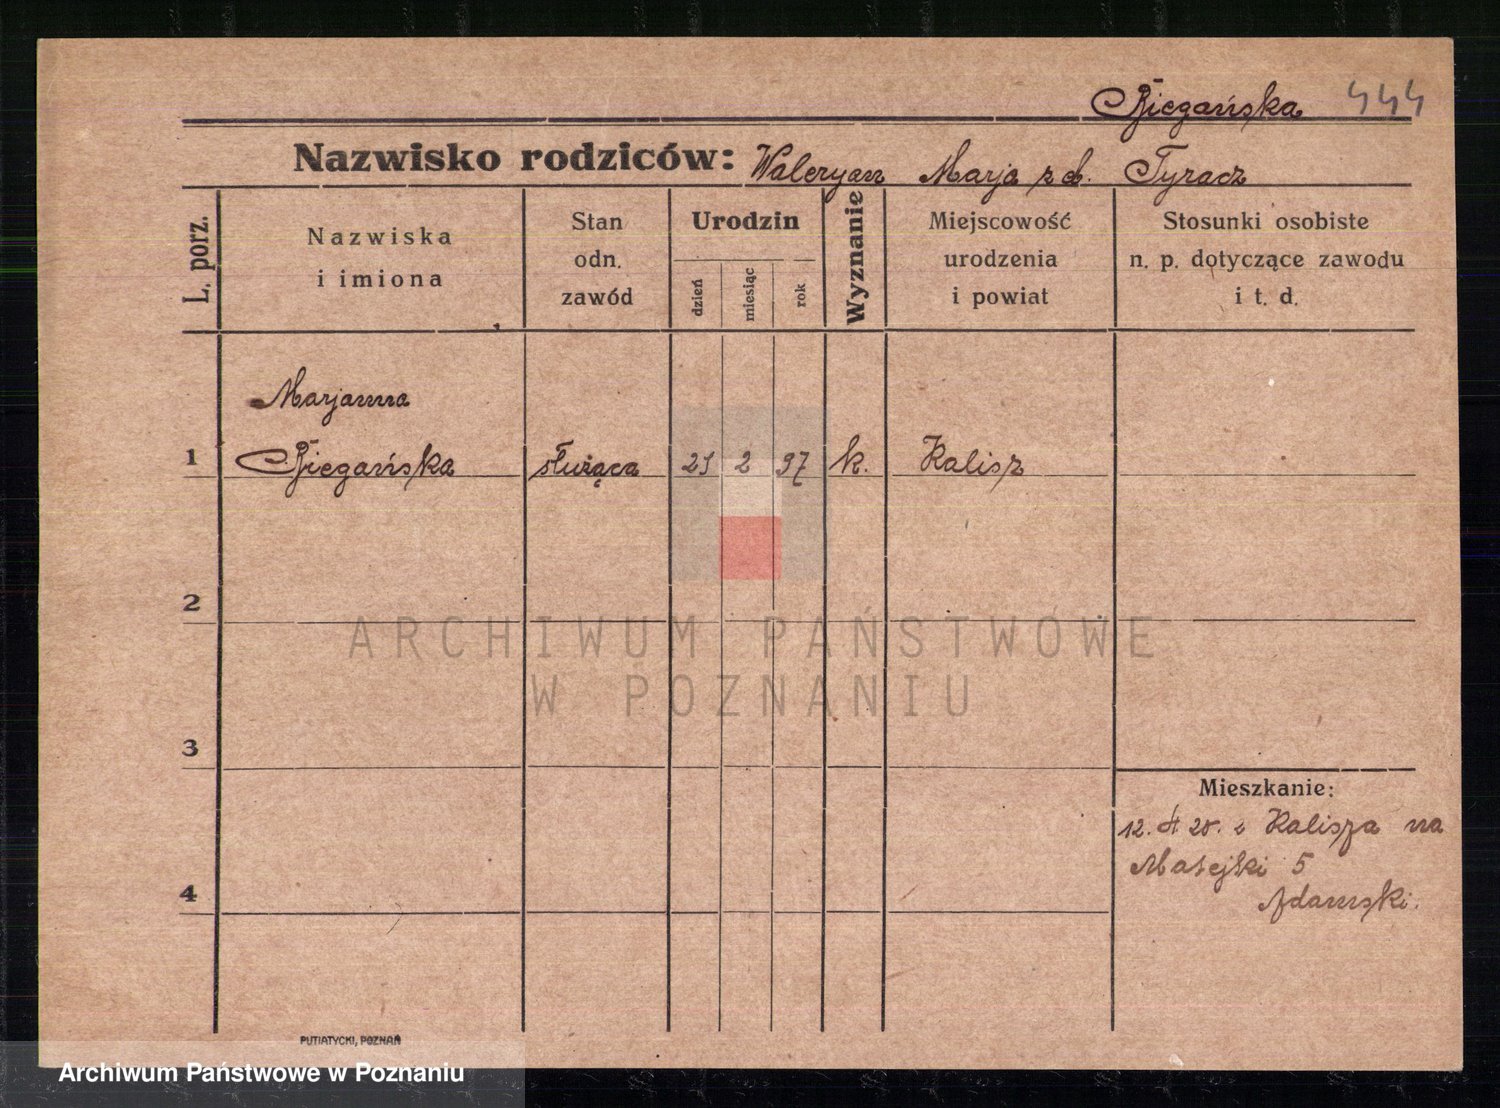 Biegańska 444
Nazwisko rodziców: Waleryan Marja z d. Tyracz
L. porz.
Nazwiska
i imiona
Stan
odn.
zawód
Urodzin
dzień
miesiąc
rok
Wyznanie
Miejscowość
urodzenia
i powiat
Stosunki osobiste
n. p. dotyczące zawodu
i t. d.
Marjanna
1 Biegańska służąca 2 97 k. Kalisz
2
3
4
Mieszkanie:
12. 20. z Kalisza na
Matejki 5
Adamski.
PUTIATYCKI, POZNAŃ
ARCHIWUM PAŃSTWOWE
W POZNANIU
Archiwum Państwowe w Poznaniu